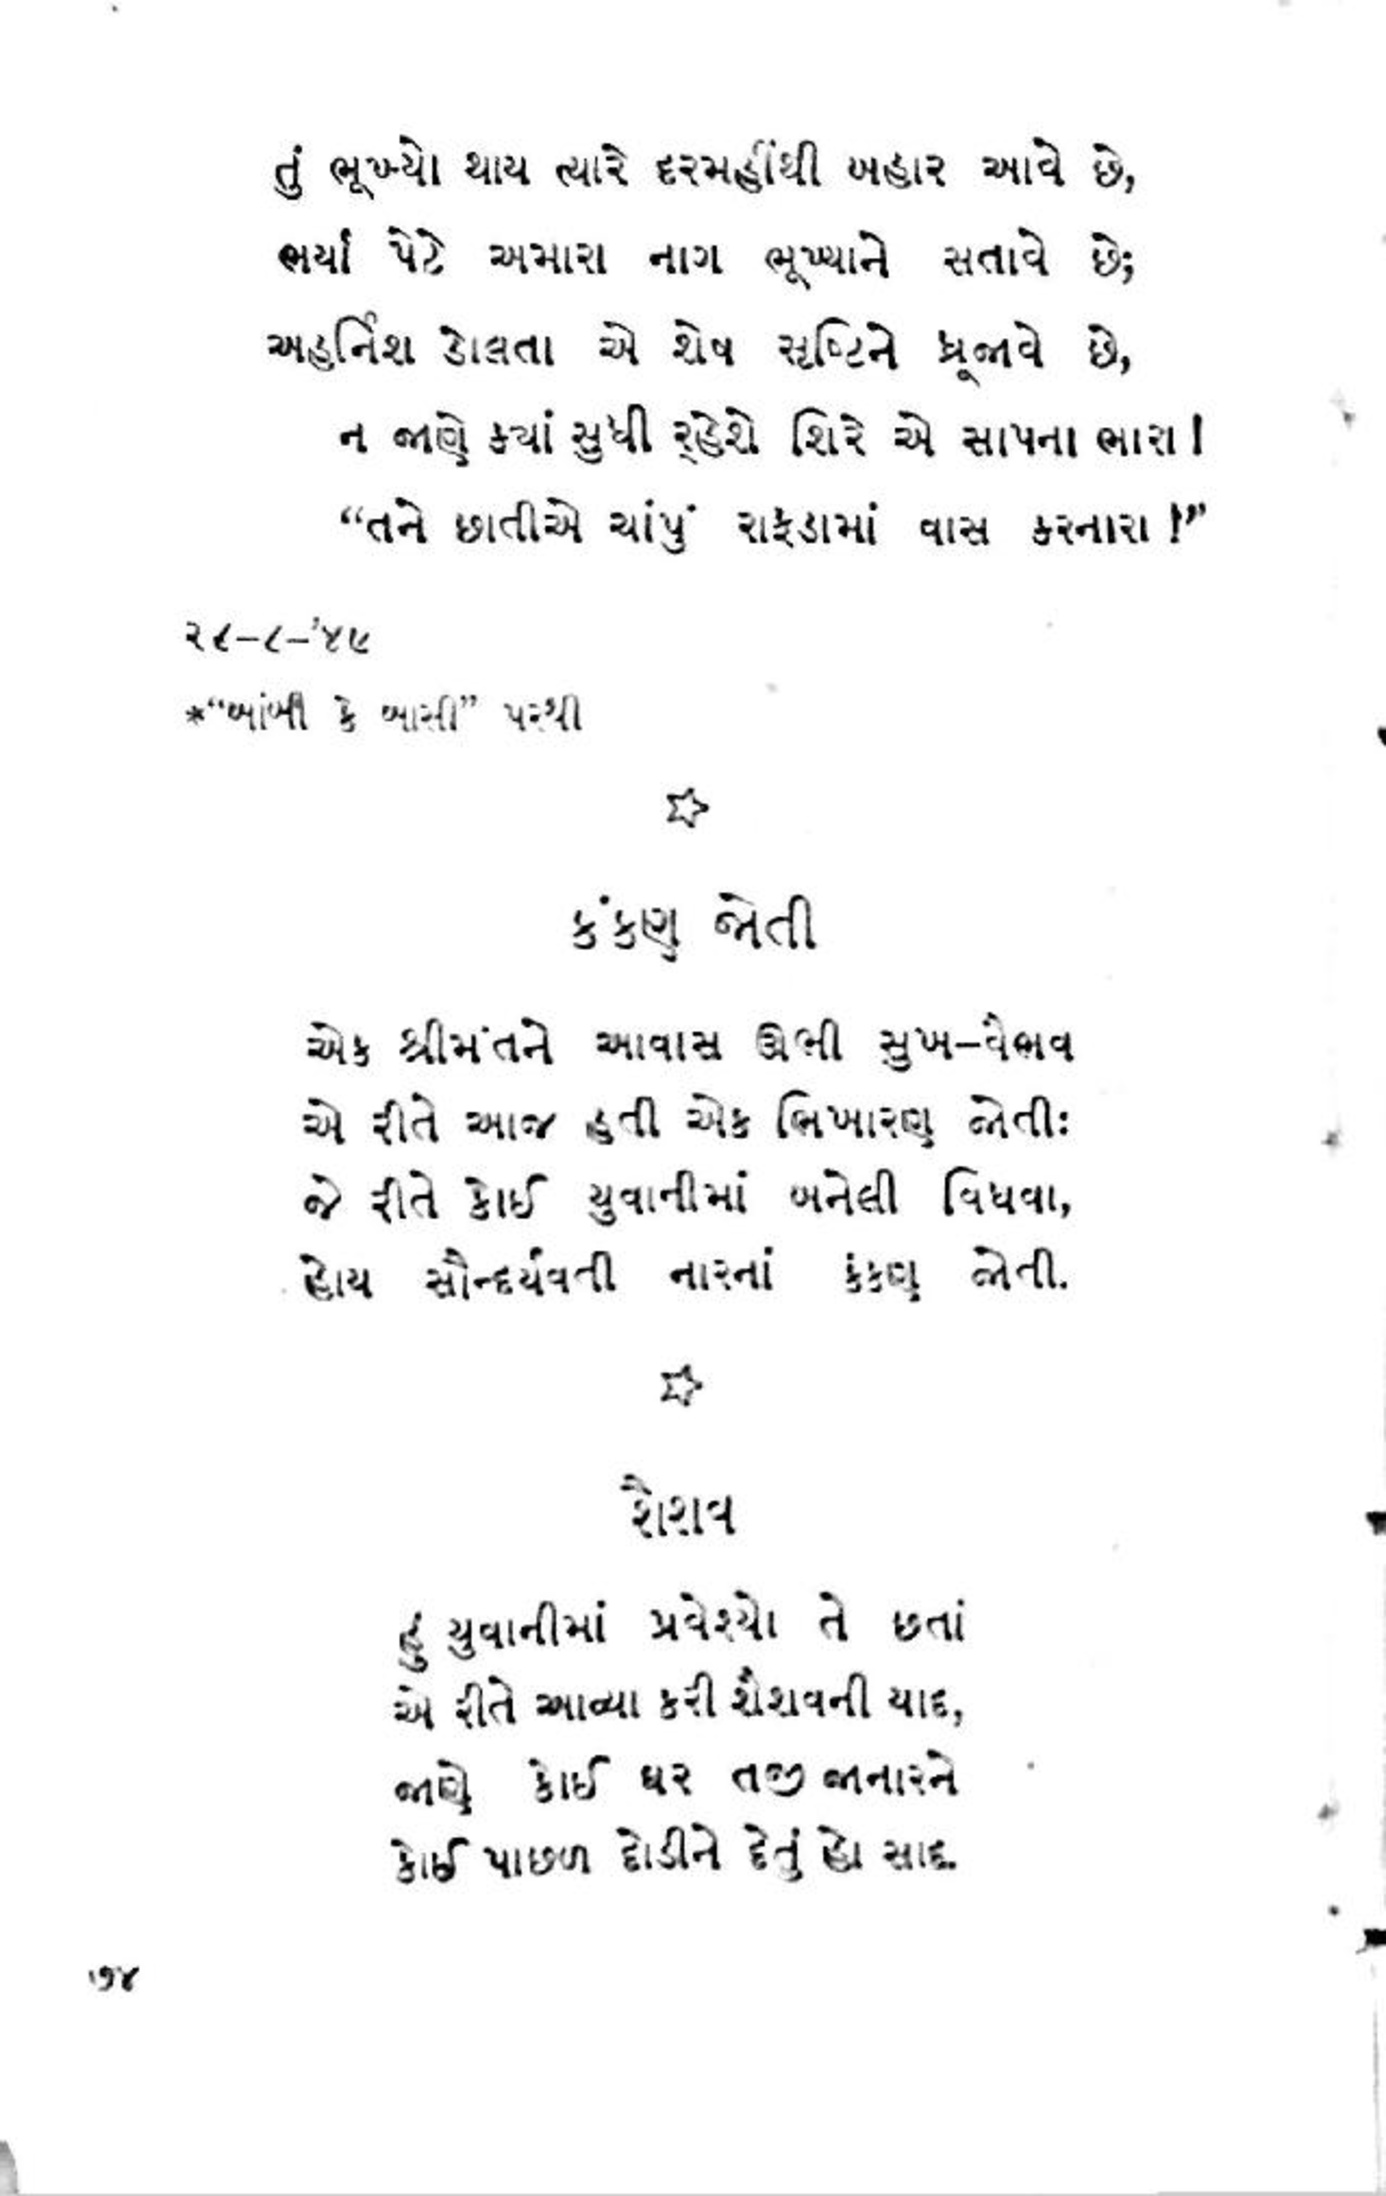 તું ભૂખ્યો થાય ત્યારે દરમહીંથી બહાર આવે છે,
ભર્યા પેટે અમારા નાગ ભૂખ્યાને સતાવે છે;
અહર્નિશ ડોલતા એ શેષ સૃષ્ટિને ધ્રૂજાવે છે,
ન જાણે ક્યાં સુધી ર્‌હેશે શિરે એ સાપના ભારા!
“તને છાતીએ ચાંપું રાફડામાં વાસ કરનારા!”
૨૮-૮-’૪૫
*“બાંબી કે બાસી” પરથી
☆
કંકણ જોતી
એક શ્રીમંતને આવાસ ઊભી સુખ-વૈભવ
એ રીતે આજ હતી એક ભિખારણ જોતીઃ
જે રીતે કોઈ યુવાનીમાં બનેલી વિધવા,
હોય સૌન્દર્યવતી નારનાં કંકણ જોતી.
☆
શૈશવ
હું યુવાનીમાં પ્રવેશ્યો તે છતાં
એ રીતે આવ્યા કરી શૈશવની યાદ,
જાણે કોઈ ઘર તજી જાનારને
કોઈ પાછળ દોડીને દેતું હો સાદ.
૭૪